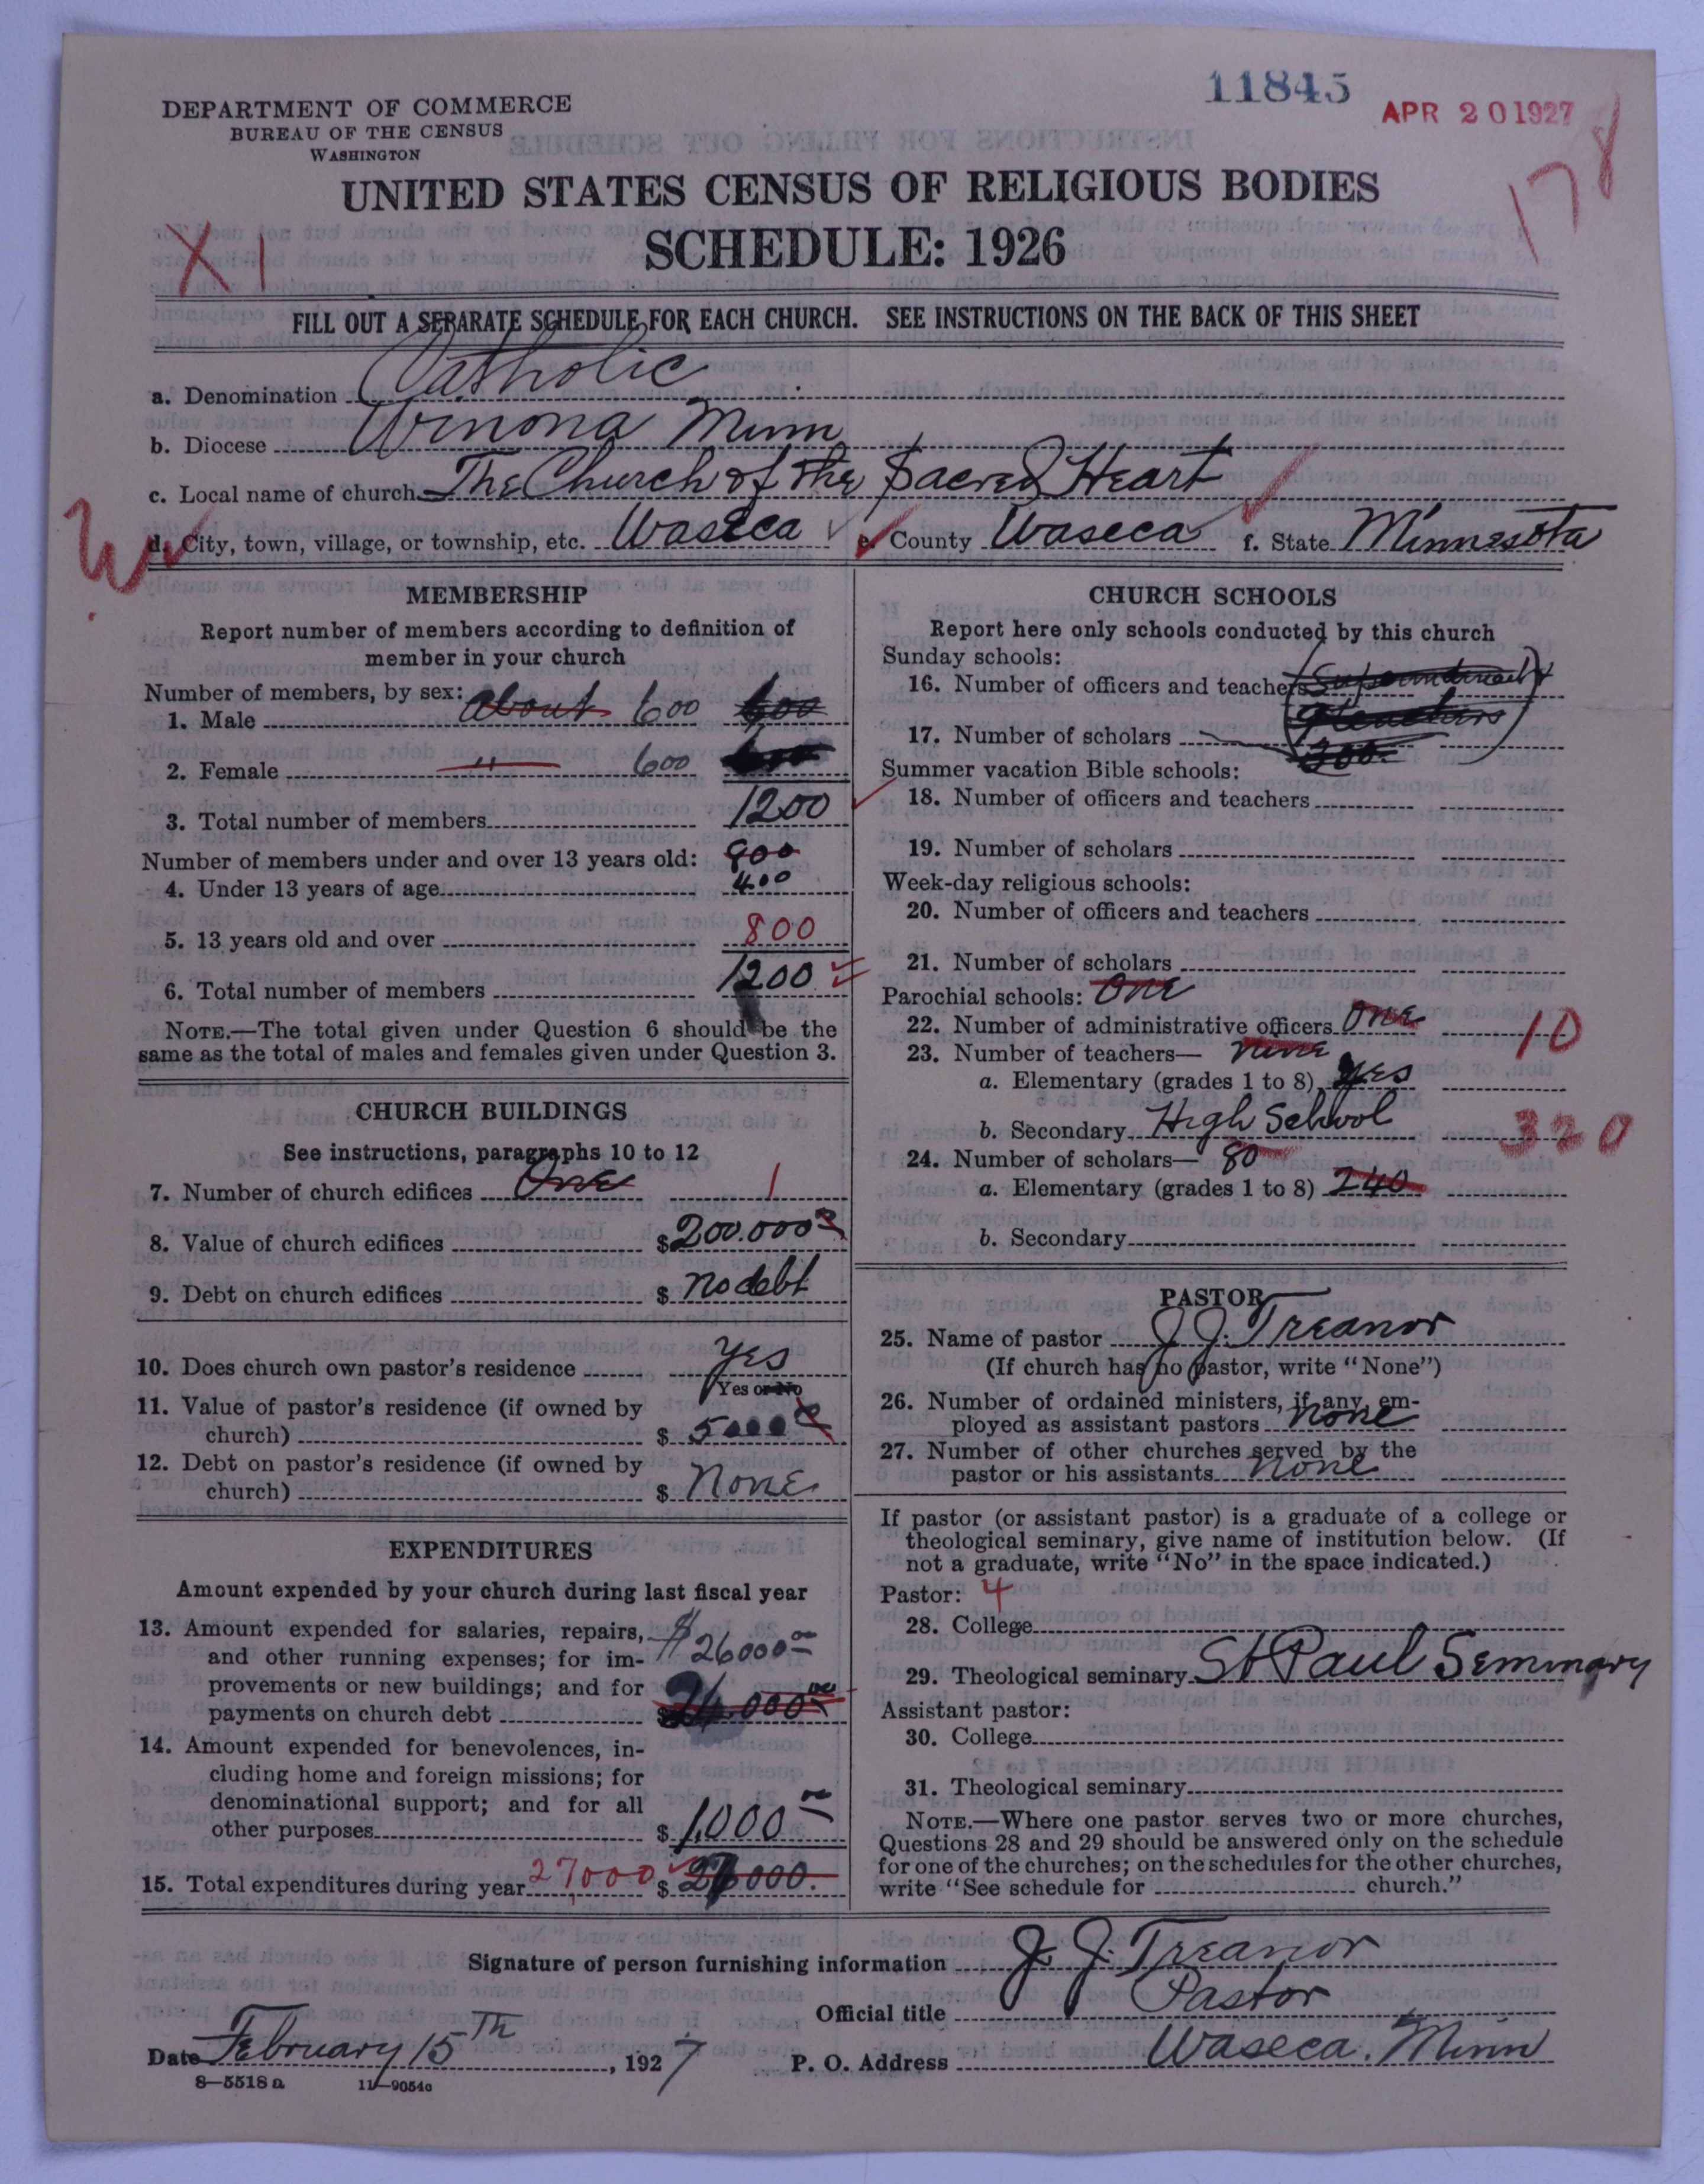 11845
APR 20 1927
178
DEPARTMENT OF COMMERCE
BUREAU OF THE CENSUS
WASHINGTON
UNITED STATES CENSUS OF RELIGIOUS BODIES
SCHEDULE: 1926
X1
FILL OUT A SEPARATE SCHEDULE FOR EACH CHURCH. SEE INSTRUCTIONS ON THE BACK OF THIS SHEET
a. Denomination Catholic
b. Diocese Winona Minn
c. Local name of church The Church of the Sacred Heart
d. City, town, village, or township, etc. Waseca e. County Waseca f. State Minnesota
MEMBERSHIP
Report number of members according to definition of
member in your church
Number of members, by sex:
1. Male about 600 600
2. Female " 600
3. Total number of members 1200
Number of members under and over 13 years old: 800
4. Under 13 years of age 400
5. 13 years old and over 800
6. Total number of members 1200
NOTE.—The total given under Question 6 should be the
same as the total of males and females given under Question 3.
CHURCH BUILDINGS
See instructions, paragraphs 10 to 12
7. Number of church edifices One 1
8. Value of church edifices $200.000
9. Debt on church edifices $ no debt
10. Does church own pastor's residence yes
Yes or No
11. Value of pastor's residence (if owned by
church) $ 5000
12. Debt on pastor's residence (if owned by
church) $ None
EXPENDITURES
Amount expended by your church during last fiscal year
13. Amount expended for salaries, repairs, $26000 00
and other running expenses; for im-
provements or new buildings; and for
payments on church debt $
14. Amount expended for benevolences, in-
cluding home and foreign missions; for
denominational support; and for all
other purposes $ 1,000 00
15. Total expenditures during year 27000 $ 27000.
CHURCH SCHOOLS
Report here only schools conducted by this church
Sunday schools:
16. Number of officers and teachers
17. Number of scholars 300.
Summer vacation Bible schools:
18. Number of officers and teachers
19. Number of scholars
Week-day religious schools:
20. Number of officers and teachers
21. Number of scholars
Parochial schools: One
22. Number of administrative officers One 10
23. Number of teachers— nine
a. Elementary (grades 1 to 8) yes
b. Secondary High School 320
24. Number of scholars— 80
a. Elementary (grades 1 to 8) 240
b. Secondary
PASTOR
25. Name of pastor J. J. Treanor
(If church has no pastor, write "None")
26. Number of ordained ministers, if any, em-
ployed as assistant pastors none
27. Number of other churches served by the
pastor or his assistants none
If pastor (or assistant pastor) is a graduate of a college or
theological seminary, give name of institution below. (If
not a graduate, write "No" in the space indicated.)
Pastor: 4
28. College
29. Theological seminary St Paul Seminary
Assistant pastor:
30. College
31. Theological seminary
NOTE.—Where one pastor serves two or more churches,
Questions 28 and 29 should be answered only on the schedule
for one of the churches; on the schedules for the other churches,
write "See schedule for church."
Signature of person furnishing information J. J. Treanor
Official title Pastor
Date February 15th, 1927 P. O. Address Waseca. Minn
8—5518 a 11—9054c